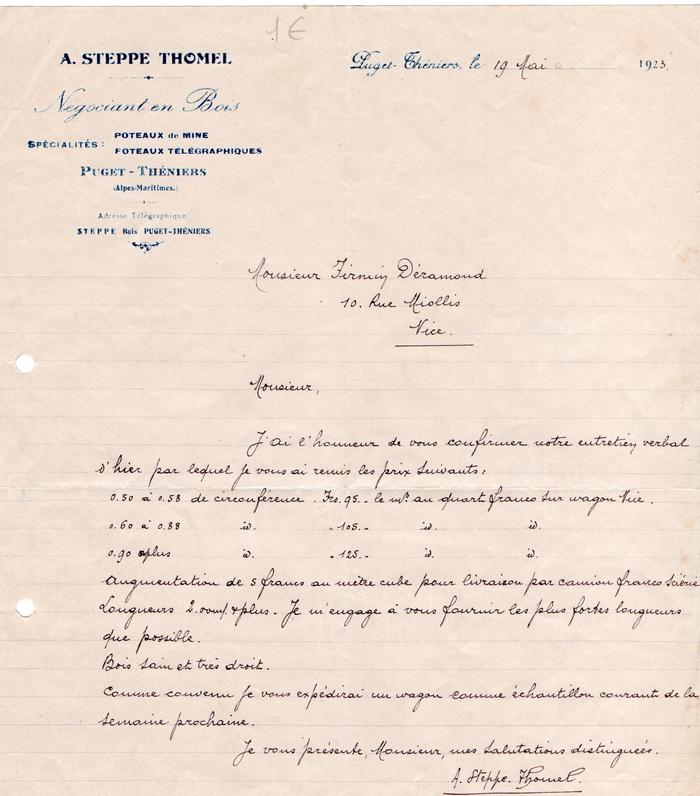 1 €
A. STEPPE THOMEL
Négociant en Bois
SPÉCIALITÉS : POTEAUX de MINE
POTEAUX TÉLÉGRAPHIQUES
PUGET-THÉNIERS
(Alpes-Maritimes.)
Adresse Télégraphique
STEPPE Bois PUGET-THÉNIERS
Puget-Théniers, le 19 Mai 1923.
Monsieur Firmin Déramond
10. Rue Miollis
Nice.
Monsieur,
J'ai l'honneur de vous confirmer notre entretien verbal
d'hier par lequel je vous ai remis les prix suivants :
0.50 à 0.58 de circonférence . Frs. 95.- le m³. au quart franco sur wagon Nice.
0.60 à 0.88 id. " 105.- id. id.
0.90 & plus id. " 125.- id. id.
Augmentation de 5 francs au mètre cube pour livraison par camion franco Scierie
Longueurs 2.00 & plus. Je m'engage à vous fournir les plus fortes longueurs
que possible.
Bois sain et très droit.
Comme convenu je vous expédirai un wagon comme échantillon courant de la
semaine prochaine.
Je vous présente, Monsieur, mes salutations distinguées.
A. Steppe. Thomel.